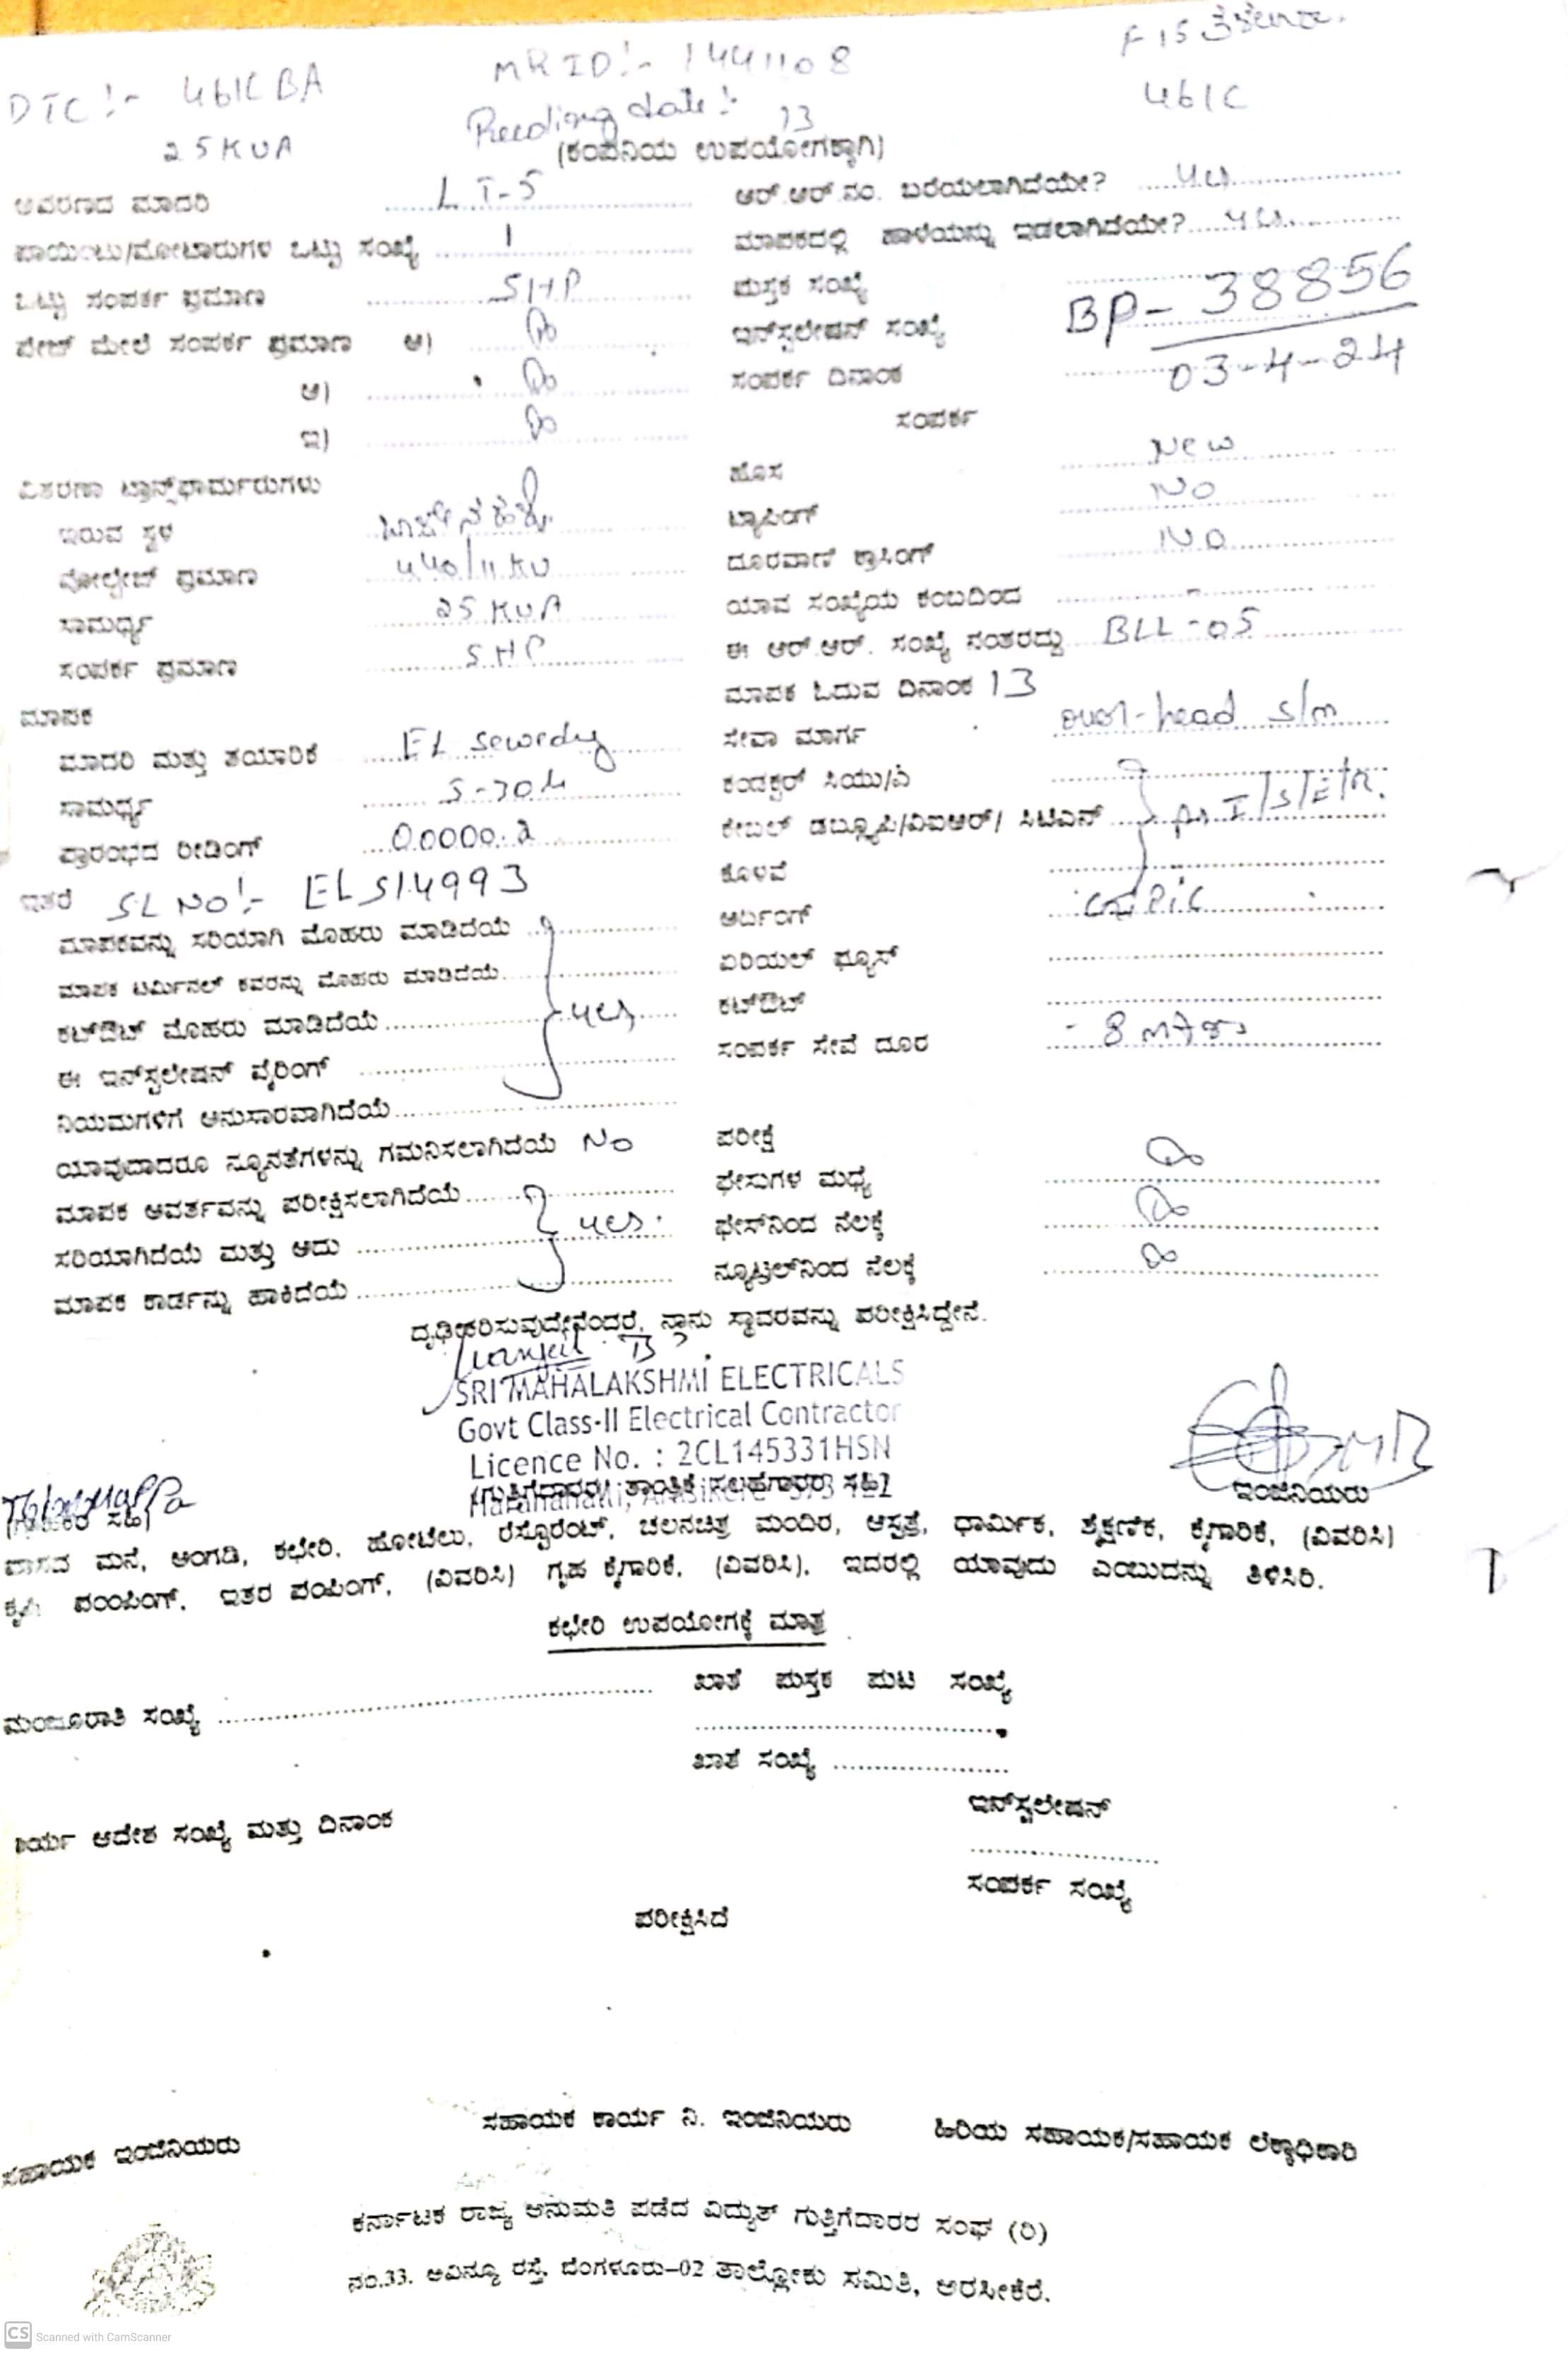 F15
DTC:- 461CBA MR ID:- 1441108 461C
25 KVA Reeding date:- 13
(ಕಂಪನಿಯ ಉಪಯೋಗಕ್ಕಾಗಿ)
ಆವರಣದ ಮಾದರಿ LT-5
ಪಾಯಿಂಟು/ಮೋಟಾರುಗಳ ಒಟ್ಟು ಸಂಖ್ಯೆ 1
ಒಟ್ಟು ಸಂಪರ್ಕ ಪ್ರಮಾಣ 5HP
ಪೇಜ್ ಮೇಲೆ ಸಂಪರ್ಕ ಪ್ರಮಾಣ ಅ)
ಆ)
ಇ)
ವಿತರಣಾ ಟ್ರಾನ್ಸ್‌ಫಾರ್ಮರುಗಳು
ಇರುವ ಸ್ಥಳ
ವೋಲ್ಟೇಜ್ ಪ್ರಮಾಣ 440/11 KV
ಸಾಮರ್ಥ್ಯ 25 KVA
ಸಂಪರ್ಕ ಪ್ರಮಾಣ 5HP
ಮಾಪಕ
ಮಾದರಿ ಮತ್ತು ತಯಾರಿಕೆ EL sewedy
ಸಾಮರ್ಥ್ಯ 5-30A
ಪ್ರಾರಂಭದ ರೀಡಿಂಗ್ 00000.2
ಇತರೆ SL NO:- ELS14993
ಮಾಪಕವನ್ನು ಸರಿಯಾಗಿ ಮೊಹರು ಮಾಡಿದೆಯೆ
ಮಾಪಕ ಟರ್ಮಿನಲ್ ಕವರನ್ನು ಮೊಹರು ಮಾಡಿದೆಯೆ
ಕಟ್‌ಔಟ್ ಮೊಹರು ಮಾಡಿದೆಯೆ yes
ಈ ಇನ್‌ಸ್ಟಲೇಷನ್ ವೈರಿಂಗ್
ನಿಯಮಗಳಿಗೆ ಅನುಸಾರವಾಗಿದೆಯೆ
ಯಾವುದಾದರೂ ನ್ಯೂನತೆಗಳನ್ನು ಗಮನಿಸಲಾಗಿದೆಯೆ No
ಮಾಪಕ ಆವರ್ತವನ್ನು ಪರೀಕ್ಷಿಸಲಾಗಿದೆಯೆ
ಸರಿಯಾಗಿದೆಯೆ ಮತ್ತು ಅದು yes.
ಮಾಪಕ ಕಾರ್ಡನ್ನು ಹಾಕಿದೆಯೆ
ಆರ್.ಆರ್.ನಂ. ಬರೆಯಲಾಗಿದೆಯೇ?
ಮಾಪಕದಲ್ಲಿ ಹಾಳೆಯನ್ನು ಇಡಲಾಗಿದೆಯೇ?
ಪುಸ್ತಕ ಸಂಖ್ಯೆ
ಇನ್‌ಸ್ಟಲೇಷನ್ ಸಂಖ್ಯೆ BP-38856
ಸಂಪರ್ಕ ದಿನಾಂಕ 03-4-24
ಸಂಪರ್ಕ
ಹೊಸ New
ಟ್ಯಾಪಿಂಗ್ NO
ದೂರವಾಣಿ ಕ್ರಾಸಿಂಗ್ NO
ಯಾವ ಸಂಖ್ಯೆಯ ಕಂಬದಿಂದ -
ಈ ಆರ್.ಆರ್. ಸಂಖ್ಯೆ ನಂತರದ್ದು BLL-05
ಮಾಪಕ ಓದುವ ದಿನಾಂಕ 13
ಸೇವಾ ಮಾರ್ಗ over-head s/m
ಕಂಡಕ್ಟರ್ ಸಿಯು/ಎ
ಕೇಬಲ್ ಡಬ್ಲ್ಯೂಪಿ/ವಿಐಆರ್/ ಸಿಟಿಎಸ್
ಕೊಳವೆ
ಅರ್ಬಂಗ್
ಏರಿಯಲ್ ಫ್ಯೂಸ್
ಕಟ್‌ಔಟ್
ಸಂಪರ್ಕ ಸೇವೆ ದೂರ 8
ಪರೀಕ್ಷೆ
ಫೇಸುಗಳ ಮಧ್ಯೆ
ಫೇಸ್‌ನಿಂದ ನೆಲಕ್ಕೆ
ನ್ಯೂಟ್ರಲ್‌ನಿಂದ ನೆಲಕ್ಕೆ
ದೃಢೀಕರಿಸುವುದೇನೆಂದರೆ, ನಾನು ಸ್ಥಾವರವನ್ನು ಪರೀಕ್ಷಿಸಿದ್ದೇನೆ.
SRI MAHALAKSHMI ELECTRICALS
Govt Class-II Electrical Contractor
Licence No. : 2CL145331HSN
(ಗುತ್ತಿಗೆದಾರರ/ ತಾಂತ್ರಿಕ ಸಲಹೆಗಾರರ ಸಹಿ) ಇಂಜಿನಿಯರು
ವಾಸದ ಮನೆ, ಅಂಗಡಿ, ಕಛೇರಿ, ಹೋಟೆಲು, ರೆಸ್ಟೊರೆಂಟ್, ಚಲನಚಿತ್ರ ಮಂದಿರ, ಆಸ್ಪತ್ರೆ, ಧಾರ್ಮಿಕ, ಶೈಕ್ಷಣಿಕ, ಕೈಗಾರಿಕೆ, (ವಿವರಿಸಿ)
ಕೃಷಿ ಪಂಪಿಂಗ್, ಇತರ ಪಂಪಿಂಗ್, (ವಿವರಿಸಿ) ಗೃಹ ಕೈಗಾರಿಕೆ, (ವಿವರಿಸಿ), ಇದರಲ್ಲಿ ಯಾವುದು ಎಂಬುದನ್ನು ತಿಳಿಸಿರಿ.
ಕಛೇರಿ ಉಪಯೋಗಕ್ಕೆ ಮಾತ್ರ
ಮಂಜೂರಾತಿ ಸಂಖ್ಯೆ ಖಾತೆ ಪುಸ್ತಕ ಪುಟ ಸಂಖ್ಯೆ
ಖಾತೆ ಸಂಖ್ಯೆ
ಆದೇಶ ಸಂಖ್ಯೆ ಮತ್ತು ದಿನಾಂಕ ಇನ್‌ಸ್ಟಲೇಷನ್
ಸಂಪರ್ಕ ಸಂಖ್ಯೆ
ಪರೀಕ್ಷಿಸಿದೆ
ಸಹಾಯಕ ಇಂಜಿನಿಯರು ಸಹಾಯಕ ಕಾರ್ಯ ನಿ. ಇಂಜಿನಿಯರು ಹಿರಿಯ ಸಹಾಯಕ/ಸಹಾಯಕ ಲೆಕ್ಕಾಧಿಕಾರಿ
ಕರ್ನಾಟಕ ರಾಜ್ಯ ಅನುಮತಿ ಪಡೆದ ವಿದ್ಯುತ್ ಗುತ್ತಿಗೆದಾರರ ಸಂಘ (ರಿ)
ನಂ.33, ಅವಿನ್ಯೂ ರಸ್ತೆ, ಬೆಂಗಳೂರು-02 ತಾಲ್ಲೋಕು ಸಮಿತಿ, ಅರಸೀಕೆರೆ.
CS Scanned with CamScanner